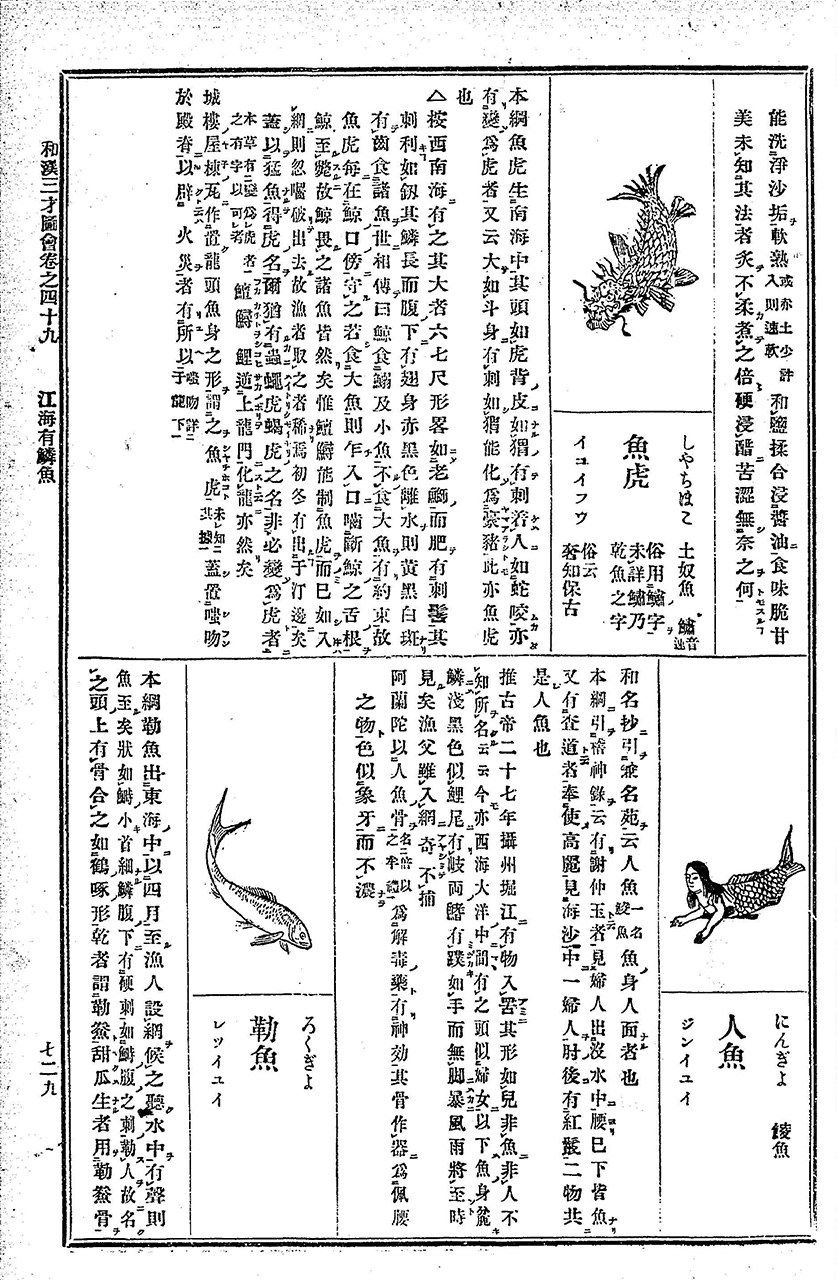 能洗淨沙垢軟熟或赤土少許入則速軟和鹽揉合浸醬油食味脆甘
美未知其法者炙不柔煮之倍硬浸醋苦澀無奈之何
しやちほこ 土奴魚 鱐音速
魚虎
俗用鱐字
未詳鱐乃
乾魚之字
イユイフウ
俗云
奢知保古
本綱魚虎生南海中其頭如虎背皮如猬有刺着人如蛇咬亦
有變爲虎者又云大如斗身有刺如猬能化爲豪豬此亦魚虎
也
△按西南海有之其大者六七尺形畧如老鰤而肥有刺鬐其
刺利如釼其鱗長而腹下有翅身赤黑色離水則黃黑白斑
有齒食諸魚世相傳曰鯨食鰯及小魚不食大魚有約束故
魚虎每在鯨口傍守之若食大魚則乍入口嚙斷鯨之舌根
鯨至斃故鯨畏之諸魚皆然矣惟鱣鱘能制魚虎而已如入
網則忽囓破出去故漁者取之者稀焉初冬有出于汀邊矣
蓋以猛魚得虎名爾猶有蟲蠅虎蝎虎之名非必變爲虎者
本草有變爲虎者之有字以可考鱣鱘鯉逆上龍門化龍亦然矣
城樓屋棟瓦作置龍頭魚身之形謂之魚虎未知其據蓋置嗤吻
於殿脊以辟火災者有所以嗤吻詳于龍下
にんぎよ 鯪魚
人魚
ジンイユイ
和名抄引兼名苑云人魚一名鯪魚魚身人面者也
本綱引稽神錄云有謝仲玉者見婦人出沒水中腰已下皆魚
又有查道者奉使高麗見海沙中一婦人肘後有紅鬣二物共
是人魚也
推古帝二十七年攝州堀江有物入罟其形如兒非魚非人不
知所名云云今亦西海大洋中間有之頭似婦女以下魚身麁
鱗淺黑色似鯉尾有岐兩鰭有蹼如手而無脚暴風雨將至時
見矣漁父雖入網奇不捕
阿蘭陀以人魚骨爲解毒藥有神効其骨作器爲佩腰
之物色似象牙而不濃
ろくぎよ
勒魚
レツイユイ
本綱勒魚出東海中以四月至漁人設網候之聽水中有聲則
魚至矣狀如鰣小首細鱗腹下有硬刺如鰣腹之刺勒人故名
之頭上有骨合之如鶴啄形乾者謂勒鯗甜瓜生者用勒鯗骨
和漢三才圖會卷之四十九 江海有鱗魚 七二九